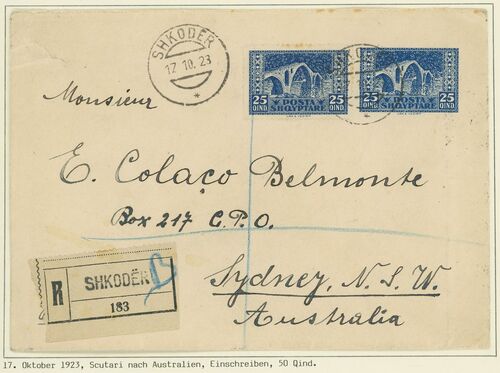 SHKODËR
17.10.23
*
25 QIND
POSTA SHQYPTARE
25 QIND
25 QIND
POSTA SHQYPTARE
25 QIND
Monsieur
E. Colaço Belmonte
Box 217 C.P.O.
R
SHKODËR
183
Sydney, N.S.W.
Australia
17. Oktober 1923, Scutari nach Australien, Einschreiben, 50 Qind.